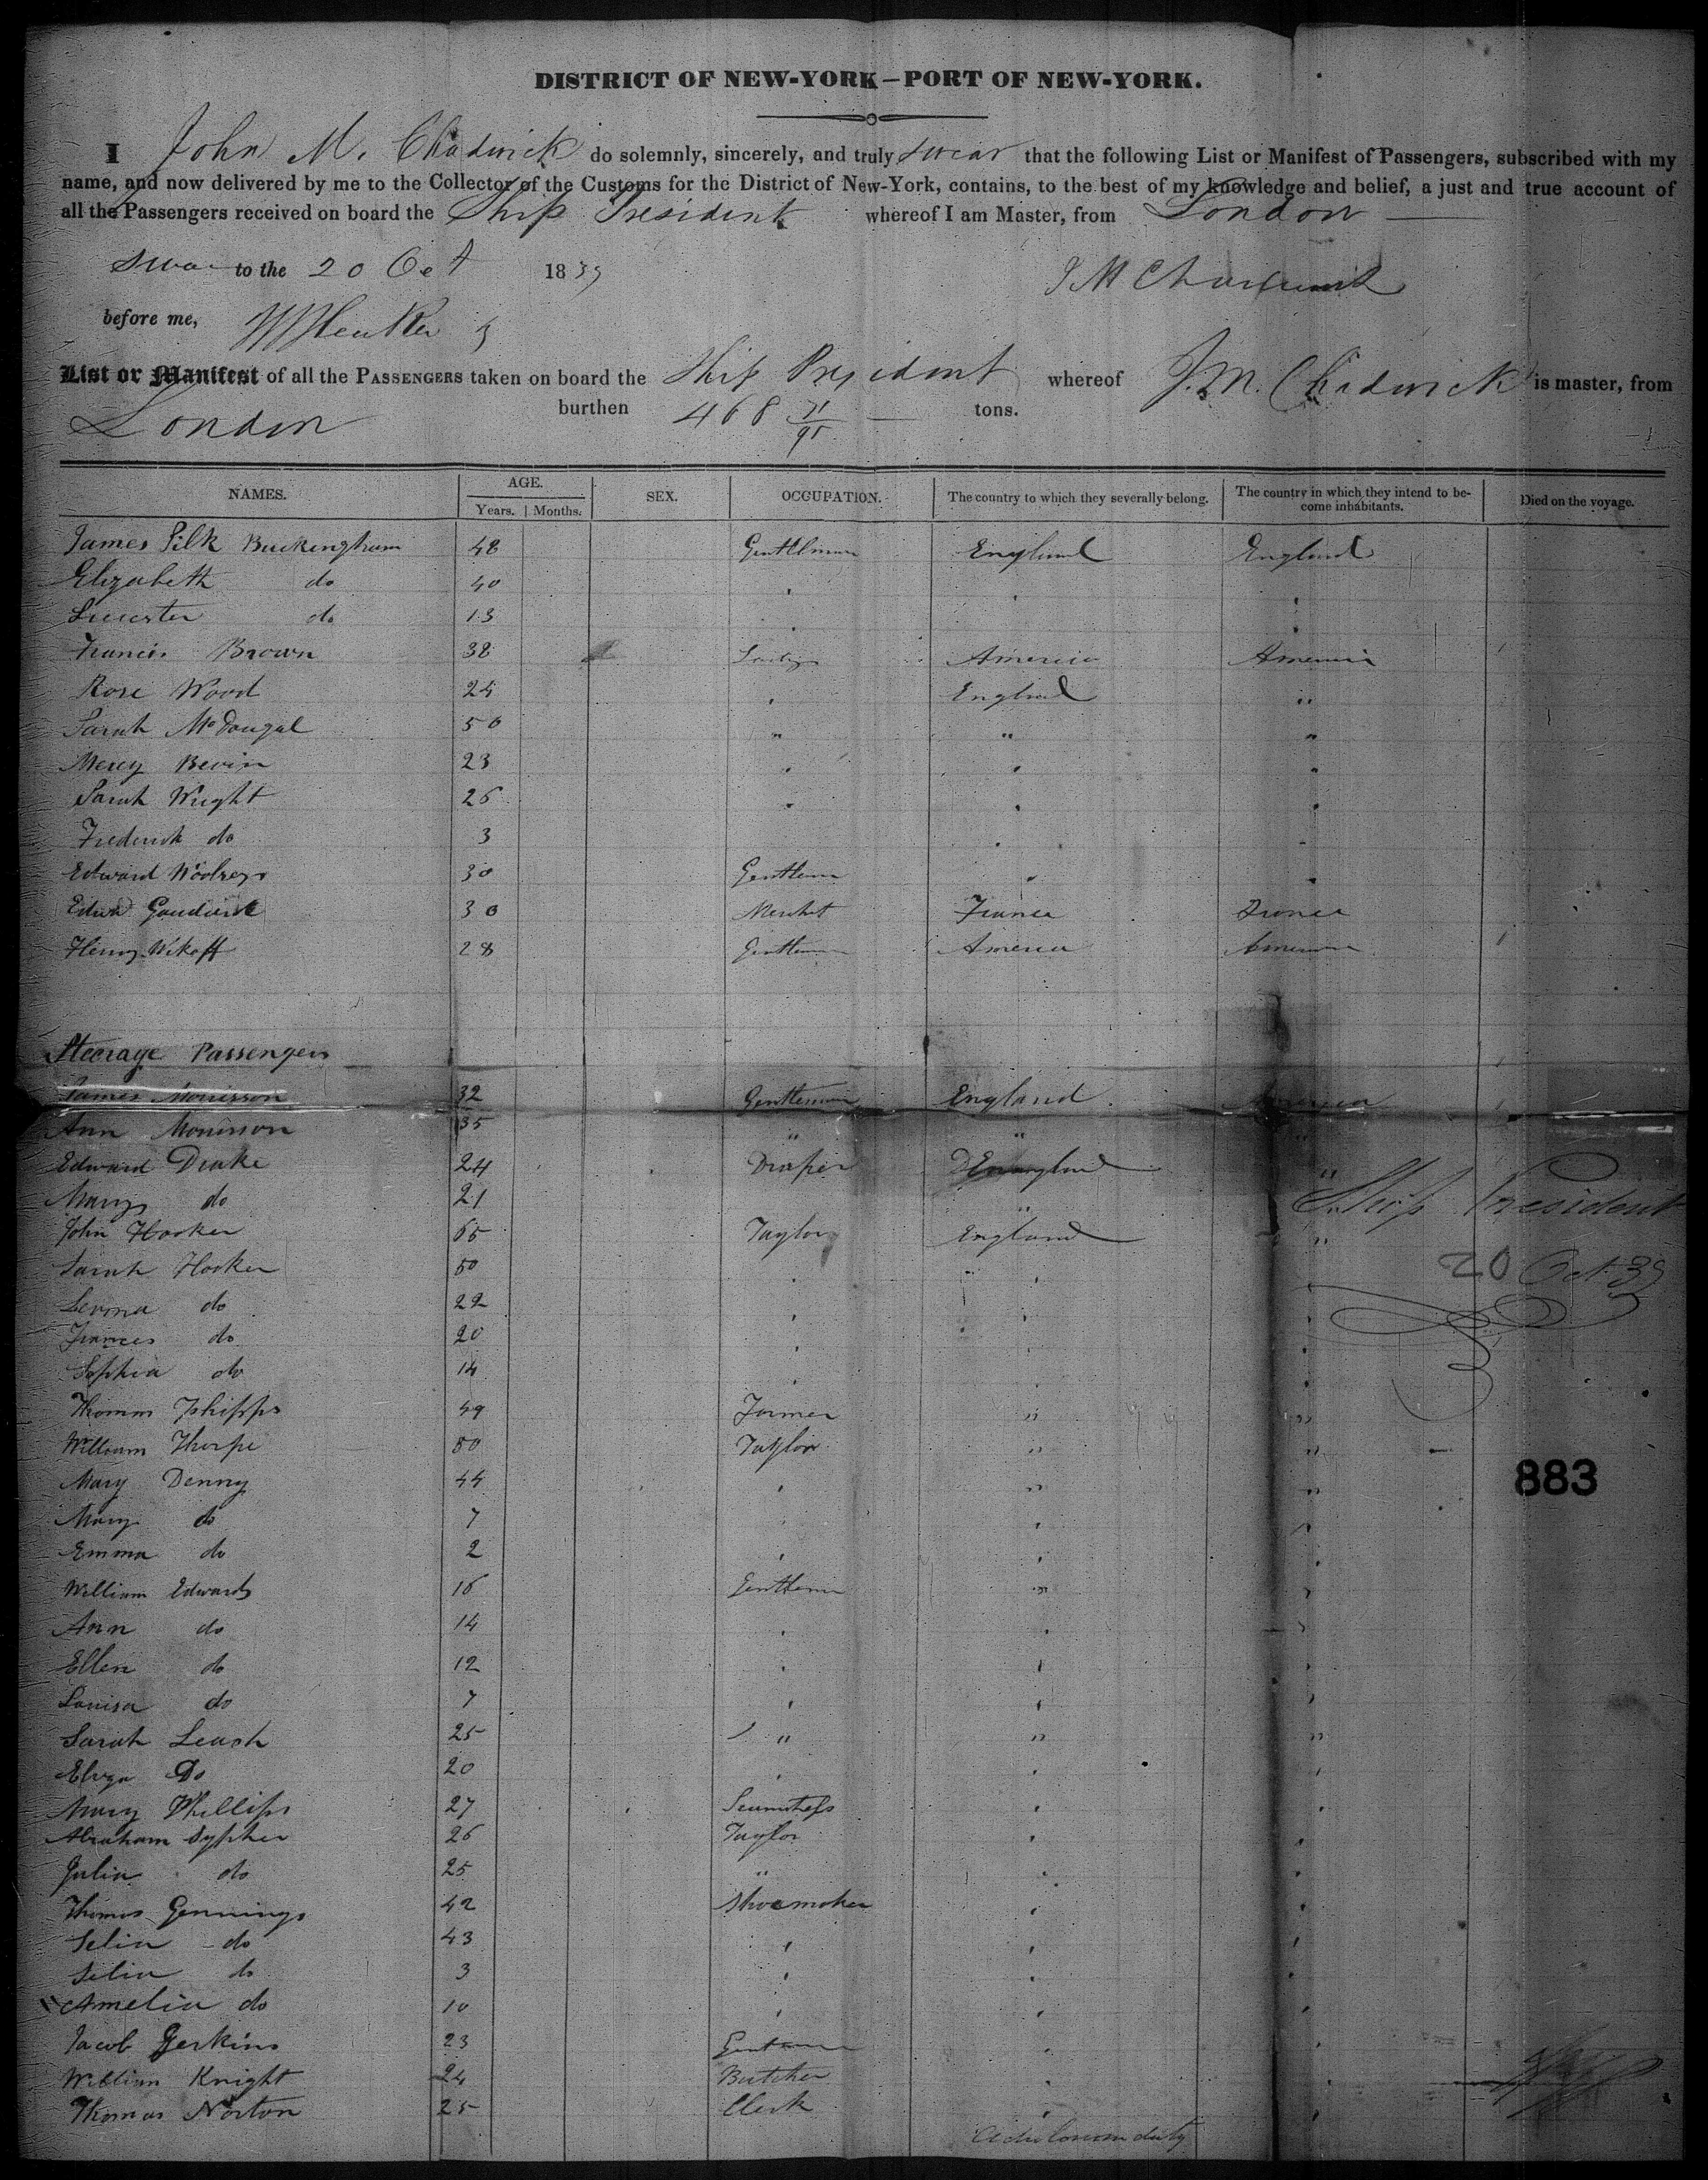 DISTRICT OF NEW-YORK—PORT OF NEW-YORK.
I John M. Chadwick do solemnly, sincerely, and truly swear that the following List or Manifest of Passengers, subscribed with my
name, and now delivered by me to the Collector of the Customs for the District of New-York, contains, to the best of my knowledge and belief, a just and true account of
all the Passengers received on board the Ship President whereof I am Master, from London
to the 20 Oct 1839
J M Chadwick
before me,
List or Manifest of all the PASSENGERS taken on board the Ship President whereof J. M. Chadwick is master, from
London burthen 468 71/95 tons.
NAMES. AGE. SEX. OCCUPATION. The country to which they severally belong. The country in which they intend to be- Died on the voyage.
Years. Months. come inhabitants.
James Silk Buckingham 48 Gentleman England England
Elizabeth do 40 " " "
Leicester do 13 " " "
Francis Brown 38 America America
Rose Wood 24 " England "
Sarah McDougal 50 " " "
Mercy Bevin 23 " " "
Sarah Wright 26 " " "
Frederick do 3 " "
Edward 30 Gentleman " "
30 Mercht France France
Henry Wikoff 28 Gentleman America America
Steerage Passengers
James Morrisson 32 Gentleman England America
Ann Morrisson 35 " " "
Edward Drake 24 Draper England "
Mary do 21 "
Ship President
John Hooker 55 Taylor England "
20 Oct. 39
Sarah Hooker 50 " "
do 22 " " "
Frances do 20 " " "
Sophia do 14 " "
Thomas Phipps 49 Farmer " "
William Thorpe 50 Taylor " "
883
Mary Denny 44 " " "
Mary do 7 " "
Emma do 2 " " "
William Edwards 16 Gentleman " "
Ann do 14 " " "
Ellen do 12 " " "
Louisa do 7 " " "
Sarah Leach 25 " " "
Eliza Do 20 " " "
Mary Phillips 27 Seamstress " "
Abraham Sypher 26 Taylor " "
Julia do 25 " " "
Thomas Gennings 42 Shoemaker " "
Selia do 43 " " "
Selia do 3 " " "
Amelia do 10 " " "
Jacob Gerkins 23 Gentleman " "
William Knight 24 Butcher " "
Thomas Norton 25 Clerk " "